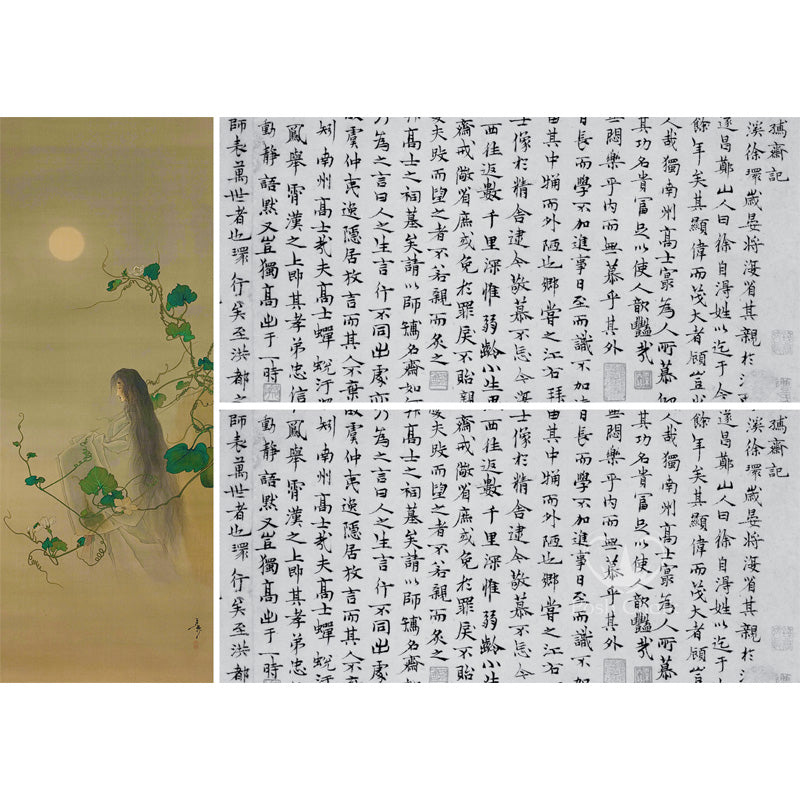 孺齋記
徐環歲晏將海省其親於
遂昌鄭山人曰徐自得姓以迄于今
餘年矣其顯偉而茂大者顧豈少
人哉獨南州高士最為人所慕仰
其功名貴富足以使人歆豔哉
悶樂乎内而無慕乎其外
日長而學不加進事日至而識不加
由其中而外陋也鄉嘗之江右拜
士像於精舍逮今敬慕不忘今
西往返數千里深惟弱齡小生
齋戒敬省庶或免於罪戾不貽
失敗而望之者不若親而炙之
拜高士之祠墓矣請以師孺名齋如何
乃為之言曰人之生言行不同出處
故虞仲夷逸隱居放言而其人不棄
如南州高士哉夫高士蟬蛻汙
鳳舉霄漢之上即其孝弟忠信
動靜語默又豈獨高出于一時
師表萬世者也環行矣至洪都之
孺齋記
徐環歲晏將海省其親於
遂昌鄭山人曰徐自得姓以迄于
餘年矣其顯偉而茂大者顧豈
人哉獨南州高士最為人所慕
其功名貴富足以使人歆豔哉
悶樂乎内而無慕乎其外
日長而學不加進事日至而識不加
由其中而外陋也鄉嘗之江右
士像於精舍逮今敬慕不忘今
西往返數千里深惟弱齡小生
齋戒敬省庶或免於罪戾不貽
失敗而望之者不若親而炙之
拜高士之祠墓矣請以師孺名齋如
乃為之言曰人之生言行不同出處
故虞仲夷逸隱居放言而其人不
如南州高士哉夫高士蟬蛻汙
鳳舉霄漢之上即其孝弟忠信
動靜語默又豈獨高出于一時
師表萬世者也環行矣至洪都